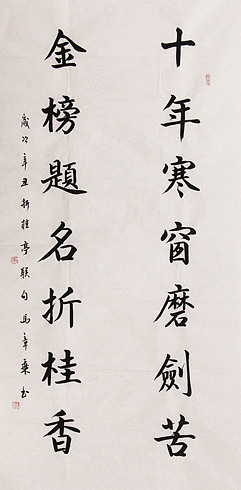 十年寒窗磨劍苦
金榜題名折桂香
歲次辛丑折桂亭联句馬辛乗书